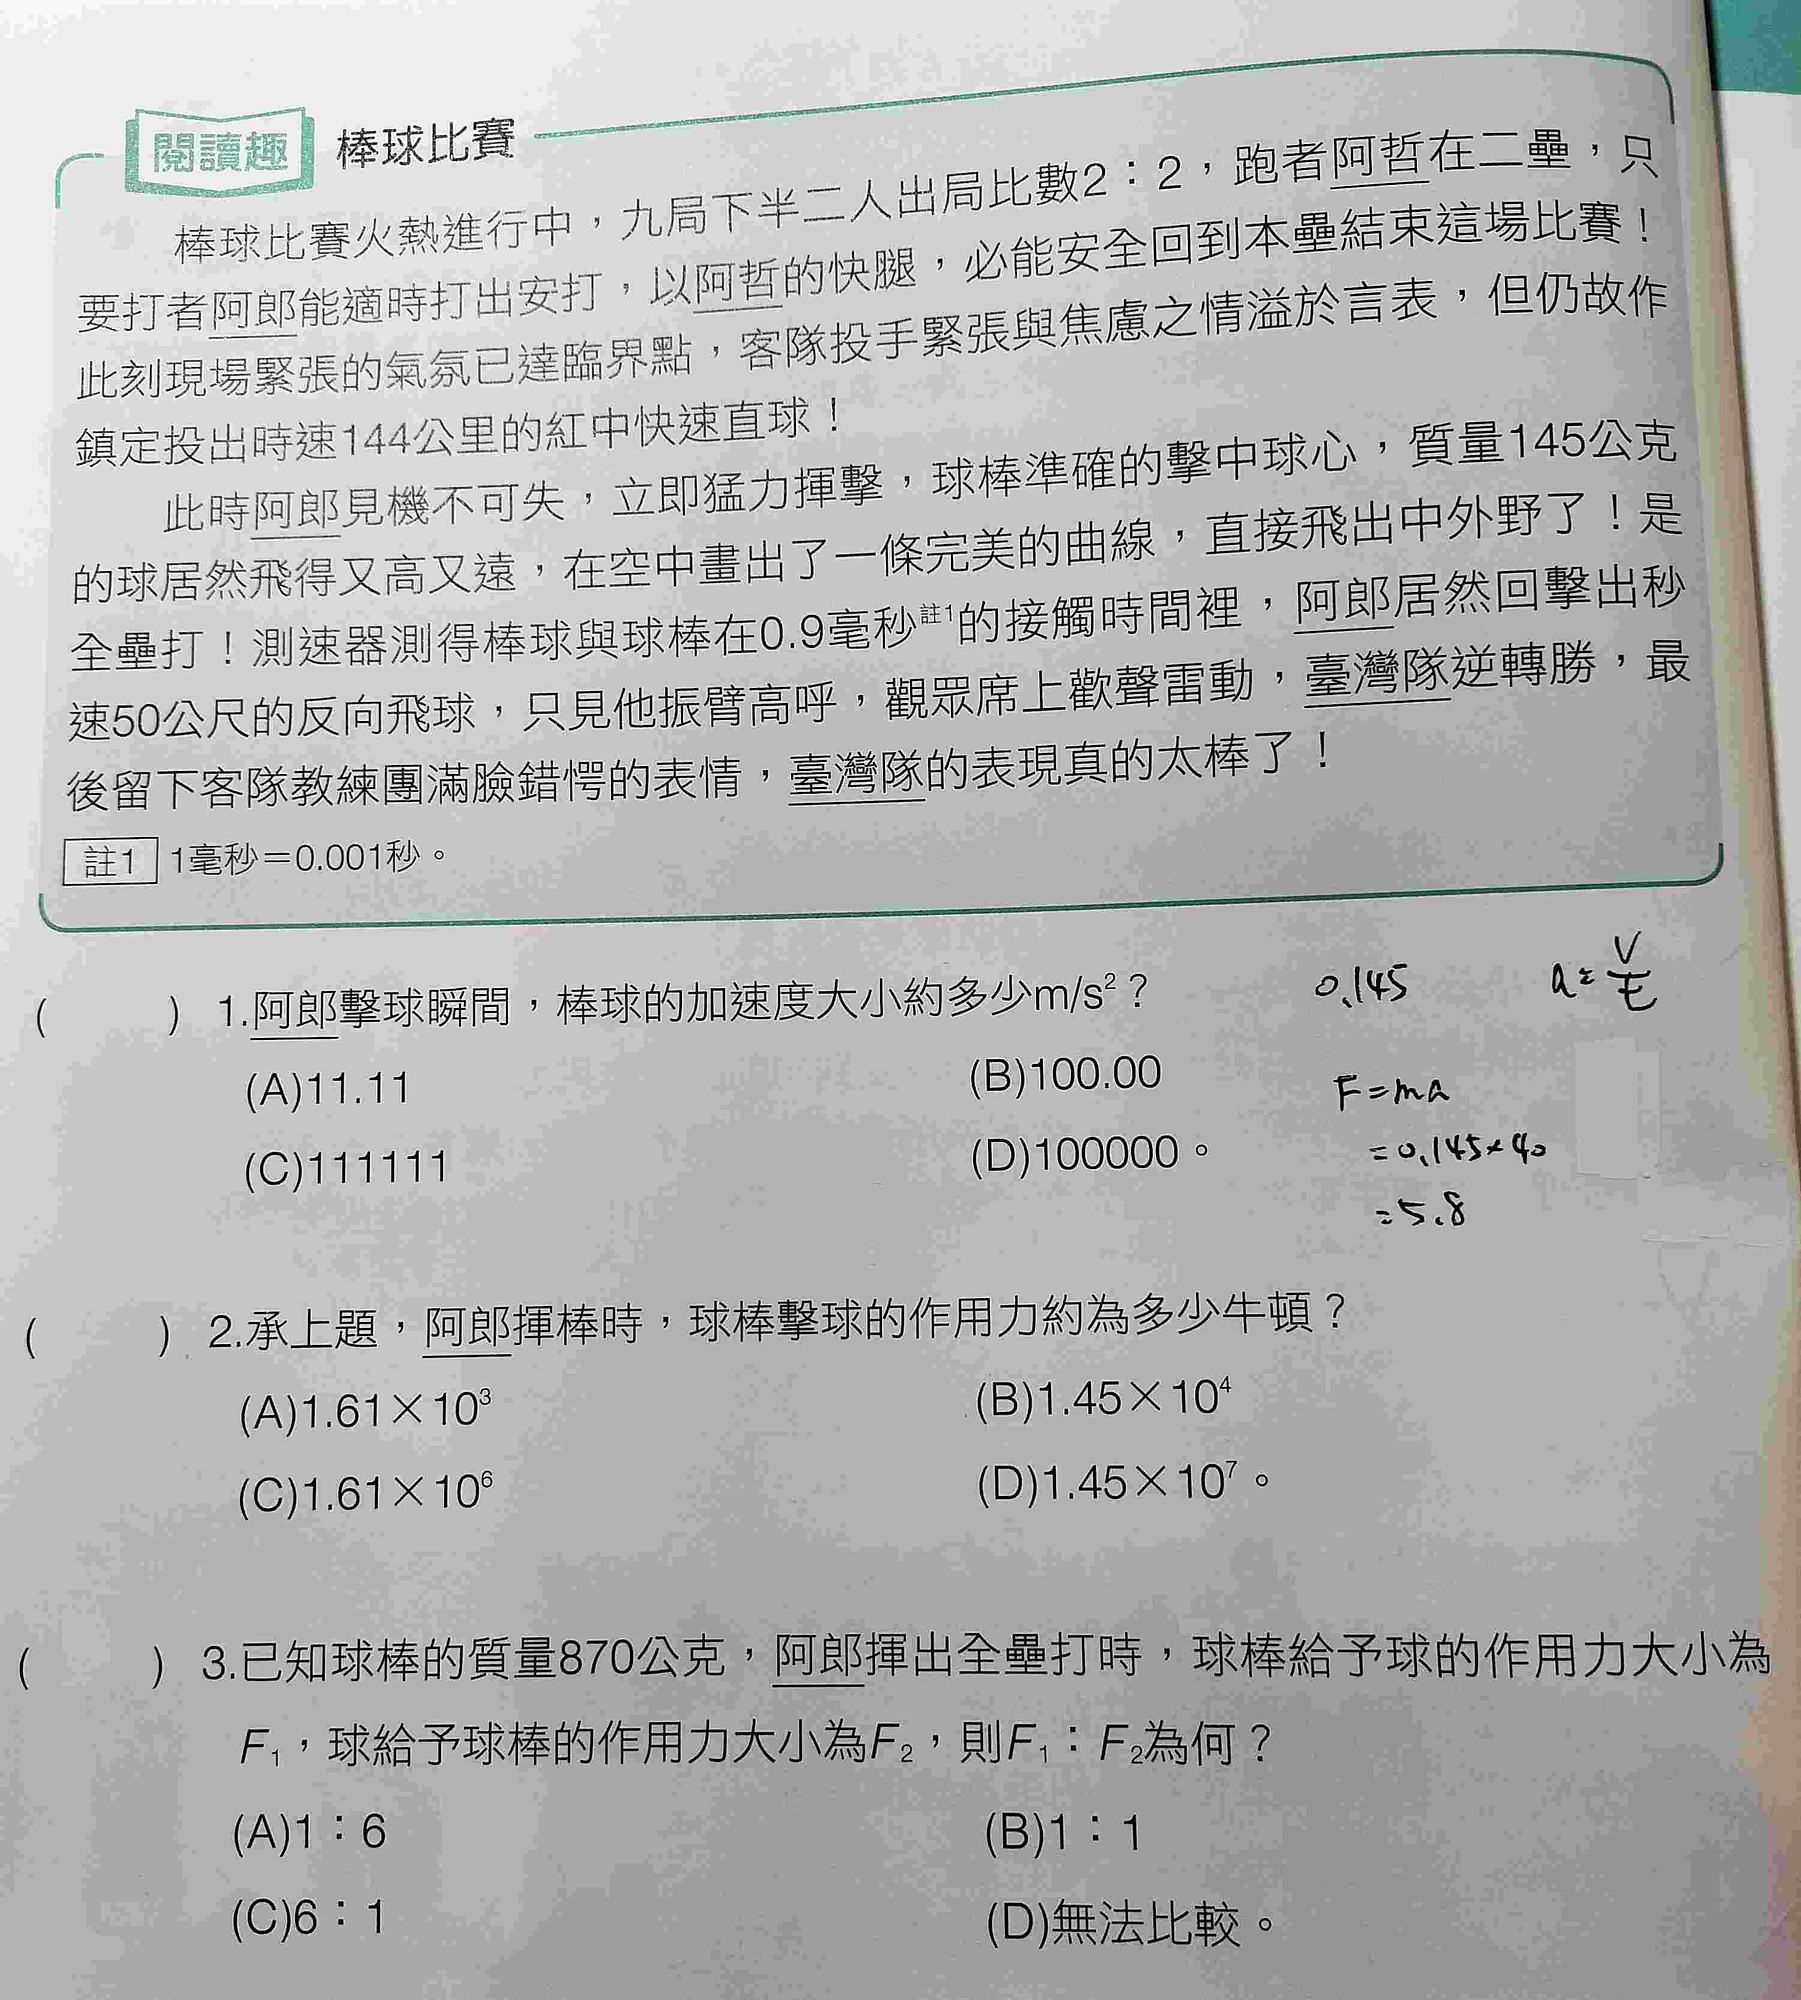 閱讀趣 棒球比賽
棒球比賽火熱進行中，九局下半二人出局比數2：2，跑者阿哲在二壘，只
要打者阿郎能適時打出安打，以阿哲的快腿，必能安全回到本壘結束這場比賽！
此刻現場緊張的氣氛已達臨界點，客隊投手緊張與焦慮之情溢於言表，但仍故作
鎮定投出時速144公里的紅中快速直球！
此時阿郎見機不可失，立即猛力揮擊，球棒準確的擊中球心，質量145公克
的球居然飛得又高又遠，在空中畫出了一條完美的曲線，直接飛出中外野了！是
全壘打！測速器測得棒球與球棒在0.9毫秒註1的接觸時間裡，阿郎居然回擊出秒
速50公尺的反向飛球，只見他振臂高呼，觀眾席上歡聲雷動，臺灣隊逆轉勝，最
後留下客隊教練團滿臉錯愕的表情，臺灣隊的表現真的太棒了！
註1 1毫秒＝0.001秒。
(　　) 1.阿郎擊球瞬間，棒球的加速度大小約多少m/s²？
0.145
a=V/t
(A)11.11 (B)100.00
F=ma
(C)111111 (D)100000。
=0.145×40
=5.8
(　　) 2.承上題，阿郎揮棒時，球棒擊球的作用力約為多少牛頓？
(A)1.61×10³ (B)1.45×10⁴
(C)1.61×10⁶ (D)1.45×10⁷。
(　　) 3.已知球棒的質量870公克，阿郎揮出全壘打時，球棒給予球的作用力大小為
F₁，球給予球棒的作用力大小為F₂，則F₁：F₂為何？
(A)1：6 (B)1：1
(C)6：1 (D)無法比較。